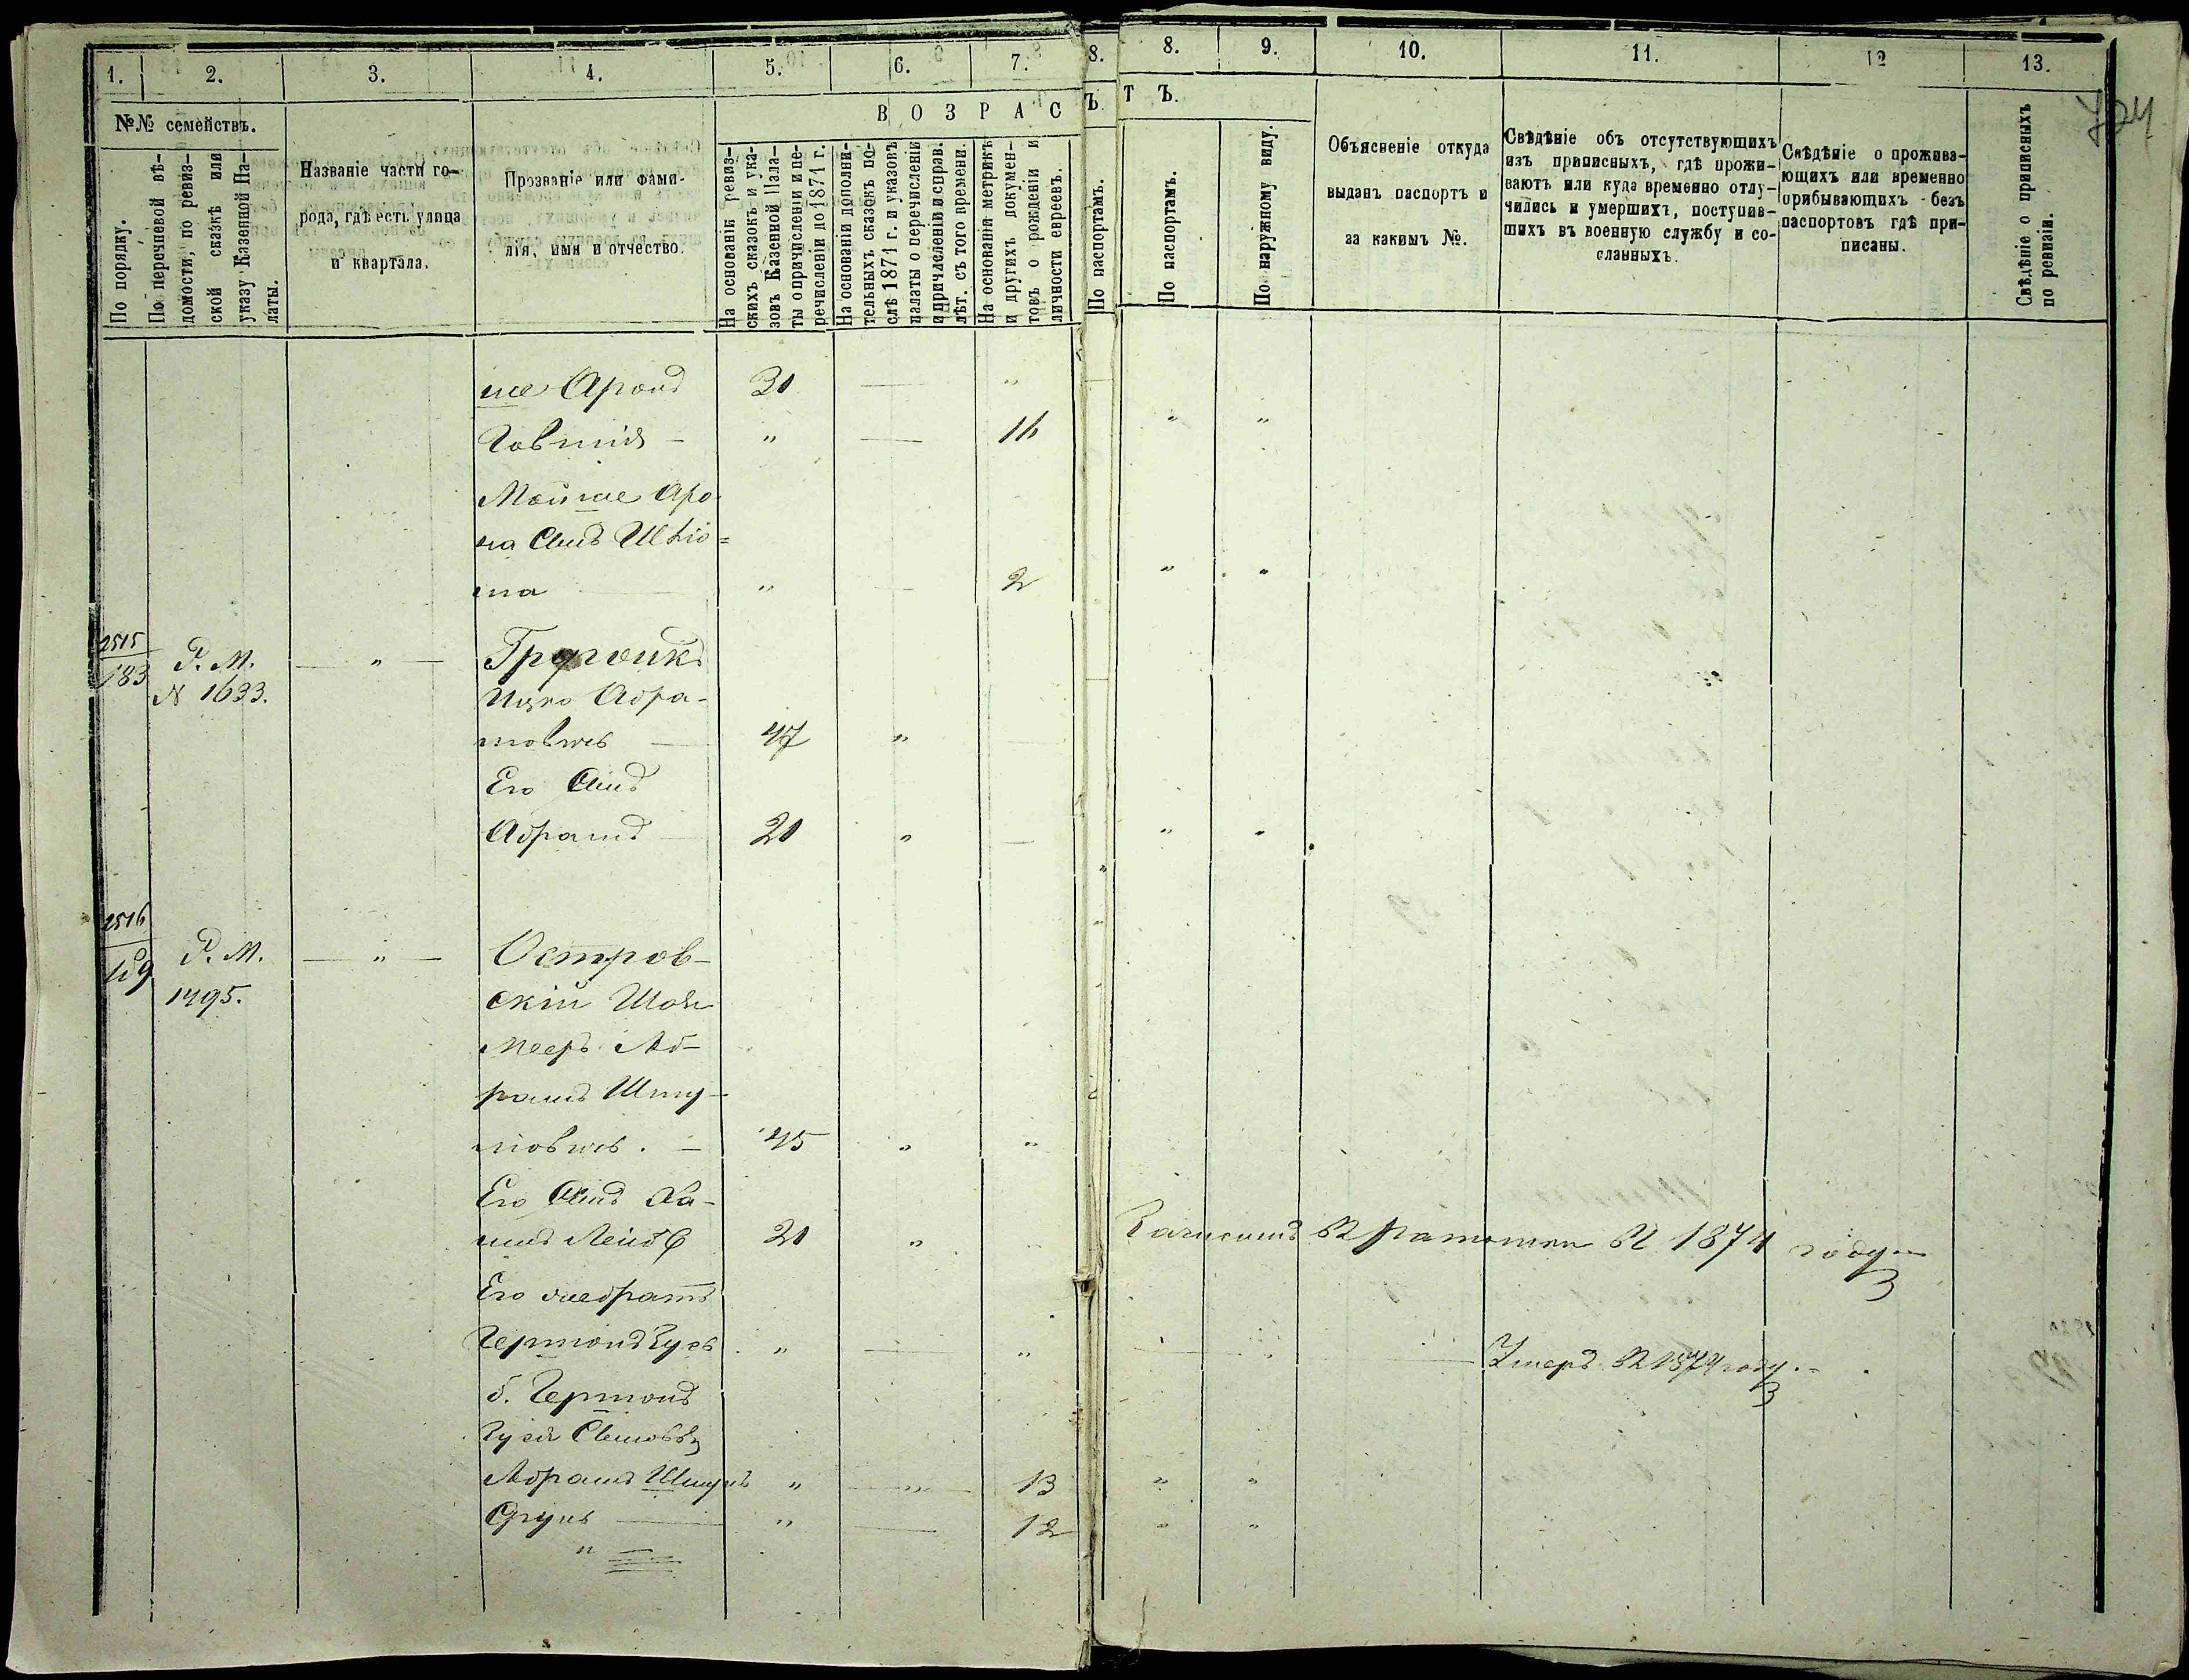 1.
2.
3.
4.
5.
6.
7.
8.
8.
9.
10.
11.
12
13.
№№ семействъ.
По порядку.
По перечневой вѣ-
домости, по ревиз-
ской сказкѣ или
указу Казенной Па-
латы.
Названіе части го-
рода, гдѣ есть улица
и кварталa.
Прозваніе или фами-
лія, имя и отчество.
ВОЗРАС
Ъ.
ТЪ.
На основаніи ревиз-
скихъ сказокъ и ука-
зовъ Казенной Пала-
ты о причисленіи и пе-
речисленіи до 1871 г.
На основаніи дополни-
тельныхъ сказокъ по-
слѣ 1871 г. и указовъ
палаты о перечисленіи
и причленіи и справ.
лѣт. съ того времени.
На основаніи метрикъ
и другихъ докумен-
товъ о рожденіи и
личности евреевъ.
По паспортамъ.
По паспортамъ.
По наружному виду.
Объясненіе откуда
выданъ паспортъ и
за какимъ №.
Свѣдѣніе объ отсутствующихъ
изъ приписныхъ, гдѣ прожи-
ваютъ или куда временно отлу-
чились и умершихъ, поступив-
шихъ въ военную службу и со-
сланныхъ.
Свѣдѣніе о прожива-
ющихъ или временно
прибывающихъ безъ
паспортовъ гдѣ при-
писаны.
Свѣдѣніе о приписныхъ
по ревизіи.
ше Аронъ 30 — "
" — 16 " "
Мойше Аро-
на Сынъ Шлио=
ма " — 2 " "
2515
183 Р. М. — " —
N 1633.
Ицко Абра-
мовичъ — 47 "
Его Сынъ
Абрамъ — 20 " — " "
2516
Р. М. — " — Остров-
1795. скій
Мееръ Аб-
рамъ Шму-
ловичъ. — 45 " "
Его Сынъ Ха-
имъ Лейбъ 20 " въ 1874 году
Его же братъ
" — " — Умеръ въ 1874 году.
б.
Абрамъ Шмуль " — 13 " "
Сруль — " — 12 " "